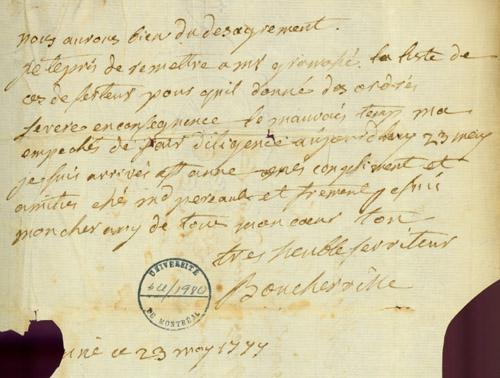 nous aurons bien du desagrement.
je te pris de remettre a mr la liste de
ces deserteur pour quil donné des ordres
severe en consequence le mauvais temp ma
empeches de fair diligence aujourdhuy 23 may
je suis arrivés a st anne mes compliment et
amities ché md pereault et frement je suis
mon cher amy de tous mon cœur ton
tres humble serviteur
Boucherville
UNIVERSITÉ
DE MONTRÉAL
anne ce 23 may 1777